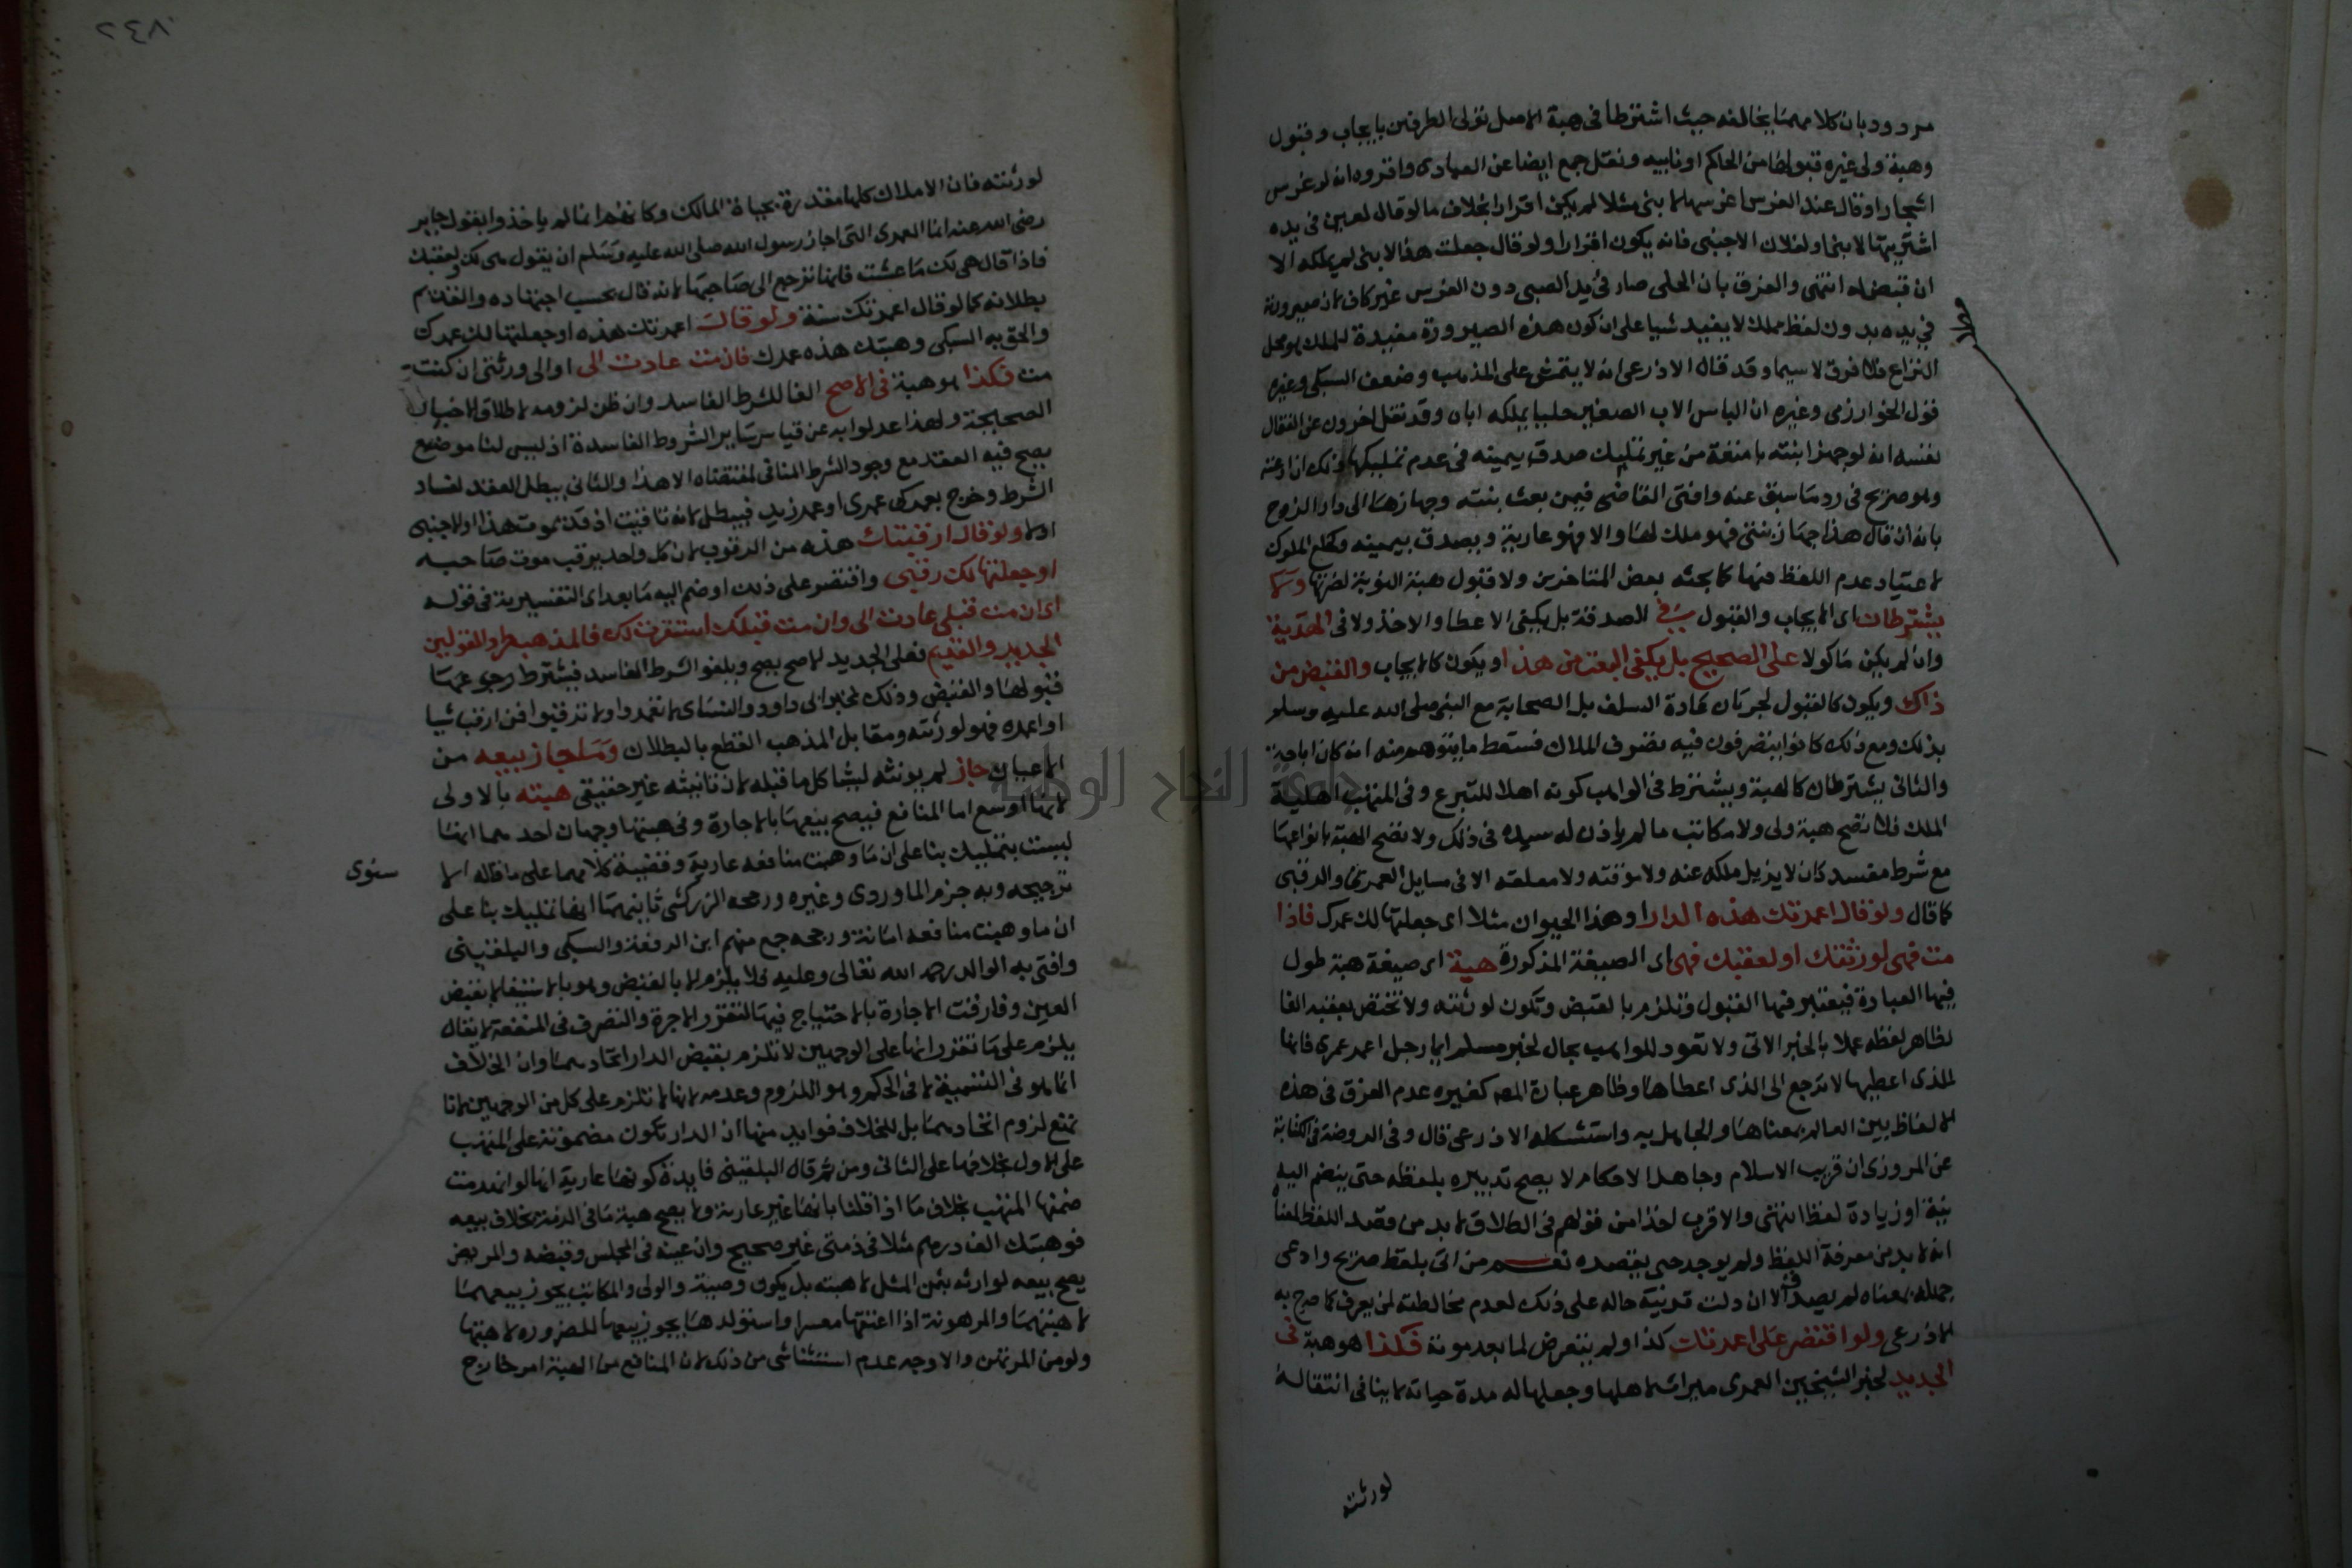 مردود بان كلامهما يخالفه حيث اشترطا في هبة الاصل تولى الطرفين بايجاب وقبول
وهبة ولى غيره قبولها من الحاكم او نايبه ونقل جمع ايضا عن العبادى واقروه انه لو غرس
اشجارا وقال عند الغرس اغرسها لابنى مثلا لم يكن اقرارا بخلاف ما لو قال لعين في يده
اشتريتها لابنى او لفلان الاجنبى فانه يكون اقرارا ولو قال جعلت هذا لابنى لم يملكه الا
ان قبض له انتهى والفرق بان الحلى صار في يد الصبى دون الغرس غير كاف لان صيرورته
في يده بدون لفظ مملك لا يفيد شيا على ان كون هذه الصيرورة مفيدة للملك هو محل
النزاع فلا فرق لا سيما وقد قال الاذرعى انه لا يتمشى على المذهب وضعف السبكى وغيره
قول الخوارزمى وغيره ان الباس الاب الصغير حليا يملكه اياه وقد نقل اخرون عن القفال
نفسه انه لو جهز ابنته بامتعة من غير تمليك صدق بيمينه في عدم تمليكها ذلك ان ادعته
وهو صريح في رد ما سبق عنه وافتى القاضى فيمن بعث بنته وجهازها الى دار الزوج
بانه ان قال هذا جهاز بنتى فهو ملك لها والا فهو عارية ويصدق بيمينه وكخلع الملوك
لاعتياد عدم اللفظ فيها كما بحثه بعض المتاخرين ولا قبول هبة النوبة لضرتها ولا
يشترطان اى الايجاب والقبول في الصدقة بل يكفى الاعطا والاخذ ولا في الهدية
وان لم يكن ماكولا على الصحيح بل يكفى البعث من هذا ويكون كالايجاب والقبض من
ذاك ويكون كالقبول لجريان عادة السلف بل الصحابة مع النبى صلى الله عليه وسلم
بذلك ومع ذلك كانوا يتصرفون فيه تصرف الملاك فسقط ما يتوهم منه انه كان اباحة
والثانى يشترطان كالهبة ويشترط في الواهب كونه اهلا للتبرع وفي المتهب اهلية
الملك فلا تصح هبة ولى ولا مكاتب ما لم ياذن له سيده في ذلك ولا تصح الهبة بانواعها
مع شرط مفسد كان لا يزيل ملكه عنه ولا موقتة ولا معلقة الا في مسايل العمرى والرقبى
كما قال ولو قال اعمرتك هذه الدار او هذا الحيوان مثلا اى جعلتها لك عمرك فاذا
مت فهى لورثتك او لعقبك فهى اى الصيغة المذكورة هبة اى صيغة هبة طول
فيها العبارة فيعتبر فيها القبول وتلزم بالقبض وتكون لورثته ولا تختص بعقبه الغا
لظاهر لفظه عملا بالخبر الاتى ولا تعود للواهب بحال لخبر مسلم ايما رجل اعمر عمرى فانها
للذى اعطيها لا ترجع الى الذى اعطاها وظاهر عبارة المصـ كغيره عدم الفرق في هذه
الالفاظ بين العالم بمعناها والجاهل به واستشكله الاذرعى قال وفي الروضة في الكتابة
عن المروزى ان قريب الاسلام وجاهل الاحكام لا يصح تدبيره بلفظه حتى ينضم اليه
نية او زيادة لفظ انتهى والاقرب اخذا من قولهم في الطلاق لا بد من قصد اللفظ لمعناه
انه لا بد من معرفة اللفظ ولم يوجد حتى يقصده نعم من اتى بلفظ صريح وادعى
جهله بمعناه لم يصدق الا ان دلت قرينة حاله على ذلك لعدم مخالطته لمن يعرف كما صرح به
الاذرعى ولو اقتصر على اعمرتك كذا ولم يتعرض لما بعد موته فكذا هو هبة في
الجديد لخبر الشيخين العمرى ميراث لاهلها وجعلها له مدة حياته لا ينافى انتقاله
لورثته
٢٤٨
لورثته فان الاملاك كلها مقدرة بحياة المالك وكانهم انما لم ياخذوا بقول جابر
رضى الله عنه انما العمرى التى اجاز رسول الله صلى الله عليه وسلم ان يقول هى لك ولعقبك
فاذا قال هى لك ما عشت فانها ترجع الى صاحبها لانه قال بحسب اجتهاده والقديم
بطلانه كما لو قال اعمرتك سنة ولو قال اعمرتك هذه او جعلتها لك عمرك
والحق به السبكى وهبتك هذه عمرك فان مت عادت الى او الى ورثتى ان كنت
مت فكذا هو هبة في الاصح الغا للشرط الفاسد وان ظن لزومه لاطلاق الاخبار
الصحيحة ولهذا عدلوا به عن قياس ساير الشروط الفاسدة اذ ليس لنا موضع
يصح فيه العقد مع وجود الشرط المنافى لمقتضاه الا هذا والثانى يبطل العقد لفساد
الشرط وخرج بعمرك عمرى او عمر زيد فيبطل لانه تاقيت اذ قد يموت هذا او الاجنبى
اولا ولو قال ارقبتك هذه من الرقوب لان كل واحد يرقب موت صاحبه
او جعلتها لك رقبى واقتصر على ذلك او ضم اليه ما بعد اى التفسيرية في قوله
اى ان مت قبلى عادت الى وان مت قبلك استقرت لك فالمذهب طرد القولين
الجديد والقديم فعلى الجديد الاصح يصح ويلغو الشرط الفاسد فيشترط
قبولها والقبض وذلك لخبر ابى داود والنساى لا تعمروا ولا ترقبوا فمن ارقب شيا
او اعمره فهو لورثته ومقابل المذهب القطع بالبطلان وما جاز بيعه من
الاعيان جاز لم يونثه ليشاكل ما قبله لان تانيثه غير حقيقى هبته بالاولى
لانها اوسع اما المنافع فيصح بيعها بالاجارة وفي هبتها وجهان احدهما انها
ليست بتمليك بنا على ان ما وهبت منافعه عارية وقضية كلامهما على ما قاله
سنوى
ترجيحه وبه جزم الماوردى وغيره ورجحه الزركشى ثانيهما انها تمليك بنا على
ان ما وهبت منافعه امانة ورجحه جمع منهم ابن الرفعة والسبكى والبلقينى
وافتى به الوالد رحمه الله تعالى وعليه فلا يلزم الا بالقبض وهو بالاستيفا لا بقبض
العين وفارقت الاجارة بالاحتياج فيها لتقرر الاجرة والتصرف في المنفعة لا يقال
يلزم على ما تقرر انها على الوجهين لا تلزم بقبض الدار اتحادهما وان الخلاف
انما هو في التسمية لا في الحكم وهو اللزوم وعدمه لانها لا تلزم على كل من الوجهين لانا
نمنع لزوم اتحادهما بل للخلاف فوايد منها ان الدار تكون مضمونة على المتهب
على الاول بخلافها على الثانى ومن ثم قال البلقينى فايدة كونها عارية انها لو انهدمت
ضمنها المتهب بخلاف ما اذا قلنا بانها غير عارية ولا يصح هبة ما في الذمة بخلاف بيعه
فوهبتك الف درهم مثلا في ذمتى غير صحيح وان عينه في المجلس وقبضه والمريض
يصح بيعه لوارثه بثمن المثل لا هبته بل يكون وصية والولى والمكاتب يجوز بيعهما
لا هبتهما والمرهونة اذا اعتقها معسرا واستولدها يجوز بيعها للضرورة لا هبتها
ولو من المرتهن والاوجه عدم استثناشى من ذلك لان المنافع من الهبة امر خارج
جامعة النجاح الوطنية